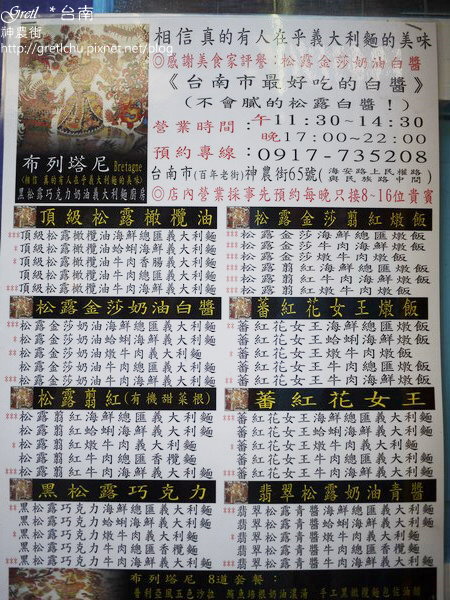 Gretl * 台南
神農街
http://gretlchu.pixnet.net/blog
相信真的有人在乎義大利麵的美味
◎感謝美食家評譽:松露金莎奶油白醬
《台南市最好吃的白醬》
(不會膩的松露白醬!)
營業時間:午11:30~14:30
晚17:00~22:00
預約專線:0917-735208
台南市(百年老街)神農街65號(海安路上民權路與民族路中間)
◎店內營業採事先預約每晚只接8~16位貴賓
布列塔尼 Bretagne
(相信 真的有人在乎義大利麵的美味)
黑松露巧克力奶油義大利麵廚房
頂級松露橄欖油
***頂級松露橄欖油海鮮總匯義大利麵
頂級松露橄欖油蛤蜊海鮮義大利麵
*頂級松露橄欖油牛肉香腸義大利麵
頂級松露橄欖油牛肉義大利麵
***頂級松露橄欖油牛肉海鮮義大利麵
松露金莎奶油白醬
***松露金莎奶油海鮮總匯義大利麵
松露金莎奶油蛤蜊海鮮義大利麵
松露金莎奶油燉牛肉義大利麵
松露金莎奶油牛肉海鮮義大利麵
松露翡紅(有機甜菜根)
松露翡紅海鮮總匯義大利麵
松露翡紅蛤蜊海鮮義大利麵
松露翡紅燉牛肉義大利麵
松露翡紅牛肉總匯香欖麵
松露翡紅牛肉海鮮義大利麵
黑松露巧克力
黑松露巧克力海鮮總匯義大利麵
黑松露巧克力蛤蜊海鮮義大利麵
黑松露巧克力燉牛肉義大利麵
黑松露巧克力牛肉總匯香欖麵
黑松露巧克力牛肉海鮮義大利麵
松露金莎翡紅燉飯
松露金莎海鮮總匯燉飯
松露金莎牛肉海鮮燉飯
松露金莎燉牛肉燉飯
松露翡紅海鮮總匯燉飯
松露翡紅牛肉海鮮燉飯
松露翡紅燉牛肉燉飯
蕃紅花女王燉飯
蕃紅花女王海鮮總匯燉飯
蕃紅花女王蛤蜊海鮮燉飯
蕃紅花女王燉牛肉燉飯
蕃紅花女王牛肉海鮮燉飯
蕃紅花女王
蕃紅花女王海鮮總匯義大利麵
蕃紅花女王蛤蜊海鮮義大利麵
蕃紅花女王燉牛肉義大利麵
蕃紅花女王牛肉總匯香欖麵
蕃紅花女王牛肉海鮮義大利麵
翡翠松露奶油青醬
翡翠松露青醬海鮮總匯義大利麵
翡翠松露青醬蛤蜊海鮮義大利麵
翡翠松露青醬燉牛肉義大利麵
翡翠松露青醬牛肉總匯香欖麵
翡翠松露青醬牛肉海鮮義大利麵
布列塔尼 8道套餐: